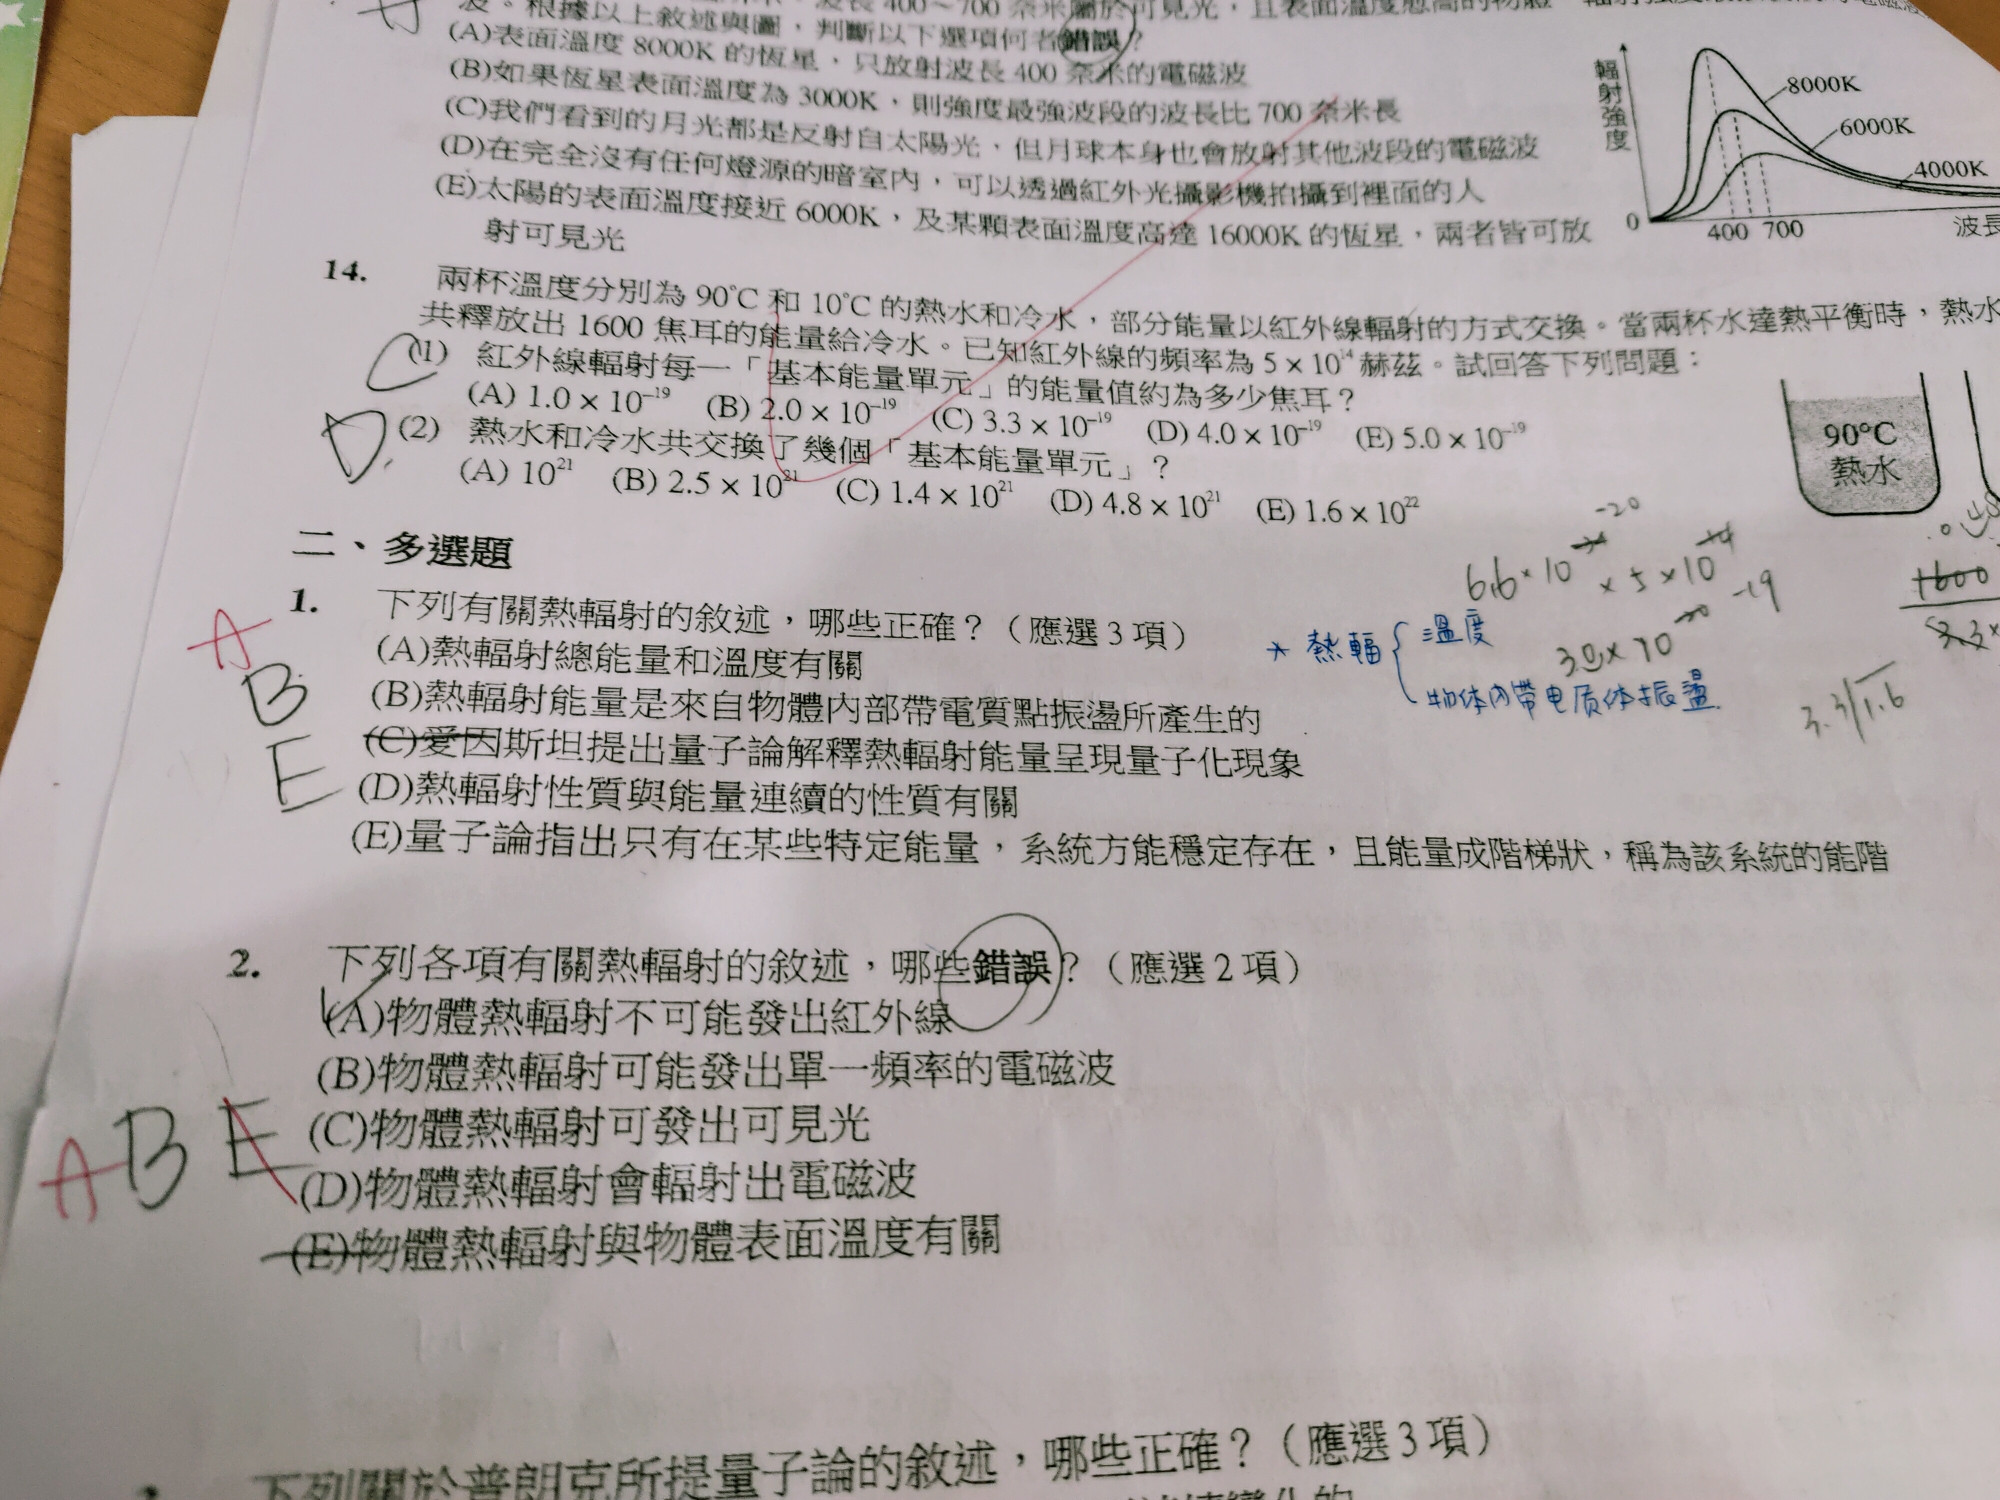 波。根據以上敘述與圖，判斷以下選項何者錯誤？
(A)表面溫度 8000K 的恆星，只放射波長 400 奈米的電磁波
(B)如果恆星表面溫度為 3000K，則強度最強波段的波長比 700 奈米長
(C)我們看到的月光都是反射自太陽光，但月球本身也會放射其他波段的電磁波
(D)在完全沒有任何燈源的暗室內，可以透過紅外光攝影機拍攝到裡面的人
(E)太陽的表面溫度接近 6000K，及某顆表面溫度高達 16000K 的恆星，兩者皆可放
射可見光
輻射強度
8000K
6000K
4000K
0
400 700
波長
14. 兩杯溫度分別為 90°C 和 10°C 的熱水和冷水，部分能量以紅外線輻射的方式交換。當兩杯水達熱平衡時，熱水
共釋放出 1600 焦耳的能量給冷水。已知紅外線的頻率為 5 × 10¹⁴ 赫茲。試回答下列問題：
C (1) 紅外線輻射每一「基本能量單元」的能量值約為多少焦耳？
(A) 1.0 × 10⁻¹⁹ (B) 2.0 × 10⁻¹⁹ (C) 3.3 × 10⁻¹⁹ (D) 4.0 × 10⁻¹⁹ (E) 5.0 × 10⁻¹⁹
D (2) 熱水和冷水共交換了幾個「基本能量單元」？
(A) 10²¹ (B) 2.5 × 10²¹ (C) 1.4 × 10²¹ (D) 4.8 × 10²¹ (E) 1.6 × 10²²
90°C
熱水
二、多選題
A B E
1. 下列有關熱輻射的敘述，哪些正確？（應選 3 項）
(A)熱輻射總能量和溫度有關
(B)熱輻射能量是來自物體內部帶電質點振盪所產生的
(C)愛因斯坦提出量子論解釋熱輻射能量呈現量子化現象
(D)熱輻射性質與能量連續的性質有關
(E)量子論指出只有在某些特定能量，系統方能穩定存在，且能量成階梯狀，稱為該系統的能階
-20
6.6×10 ×5×10
-19
熱輻 溫度
物体內帶电质体振盪
3.3 1.6
1600
2. 下列各項有關熱輻射的敘述，哪些錯誤？（應選 2 項）
(A)物體熱輻射不可能發出紅外線
(B)物體熱輻射可能發出單一頻率的電磁波
(C)物體熱輻射可發出可見光
(D)物體熱輻射會輻射出電磁波
(E)物體熱輻射與物體表面溫度有關
A B E
下列關於普朗克所提量子論的敘述，哪些正確？（應選 3 項）